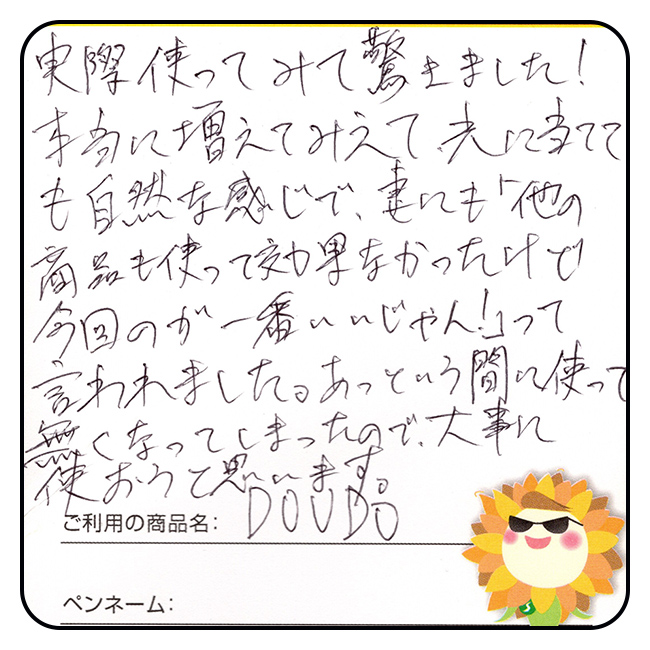 実際使ってみて驚きました!
本当に増えてみえて光に当てて
も自然な感じで、妻にも「他の
商品も使って効果なかったけど
今回のが一番いいじゃん!」って
言われました。あっという間に使って
無くなってしまったので、大事に
使おうと思います。
ご利用の商品名: DOUDO
ペンネーム: